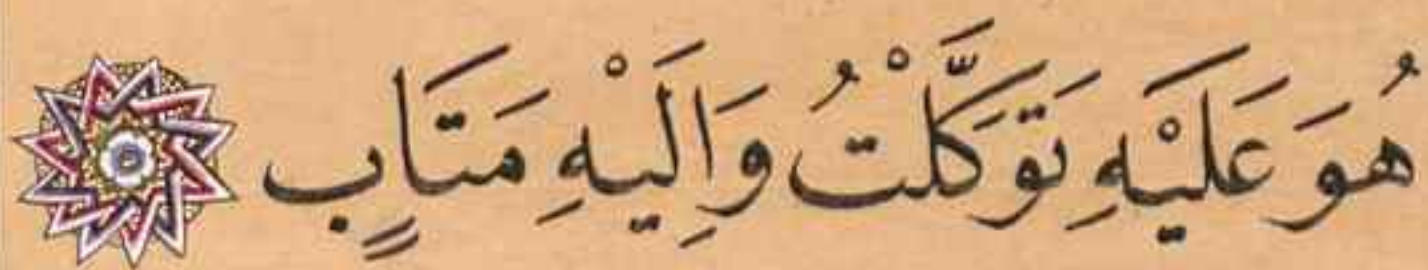 هُوَ عَلَيْهِ تَوَكَّلْتُ وَاِلَيْهِ مَتَابٍ